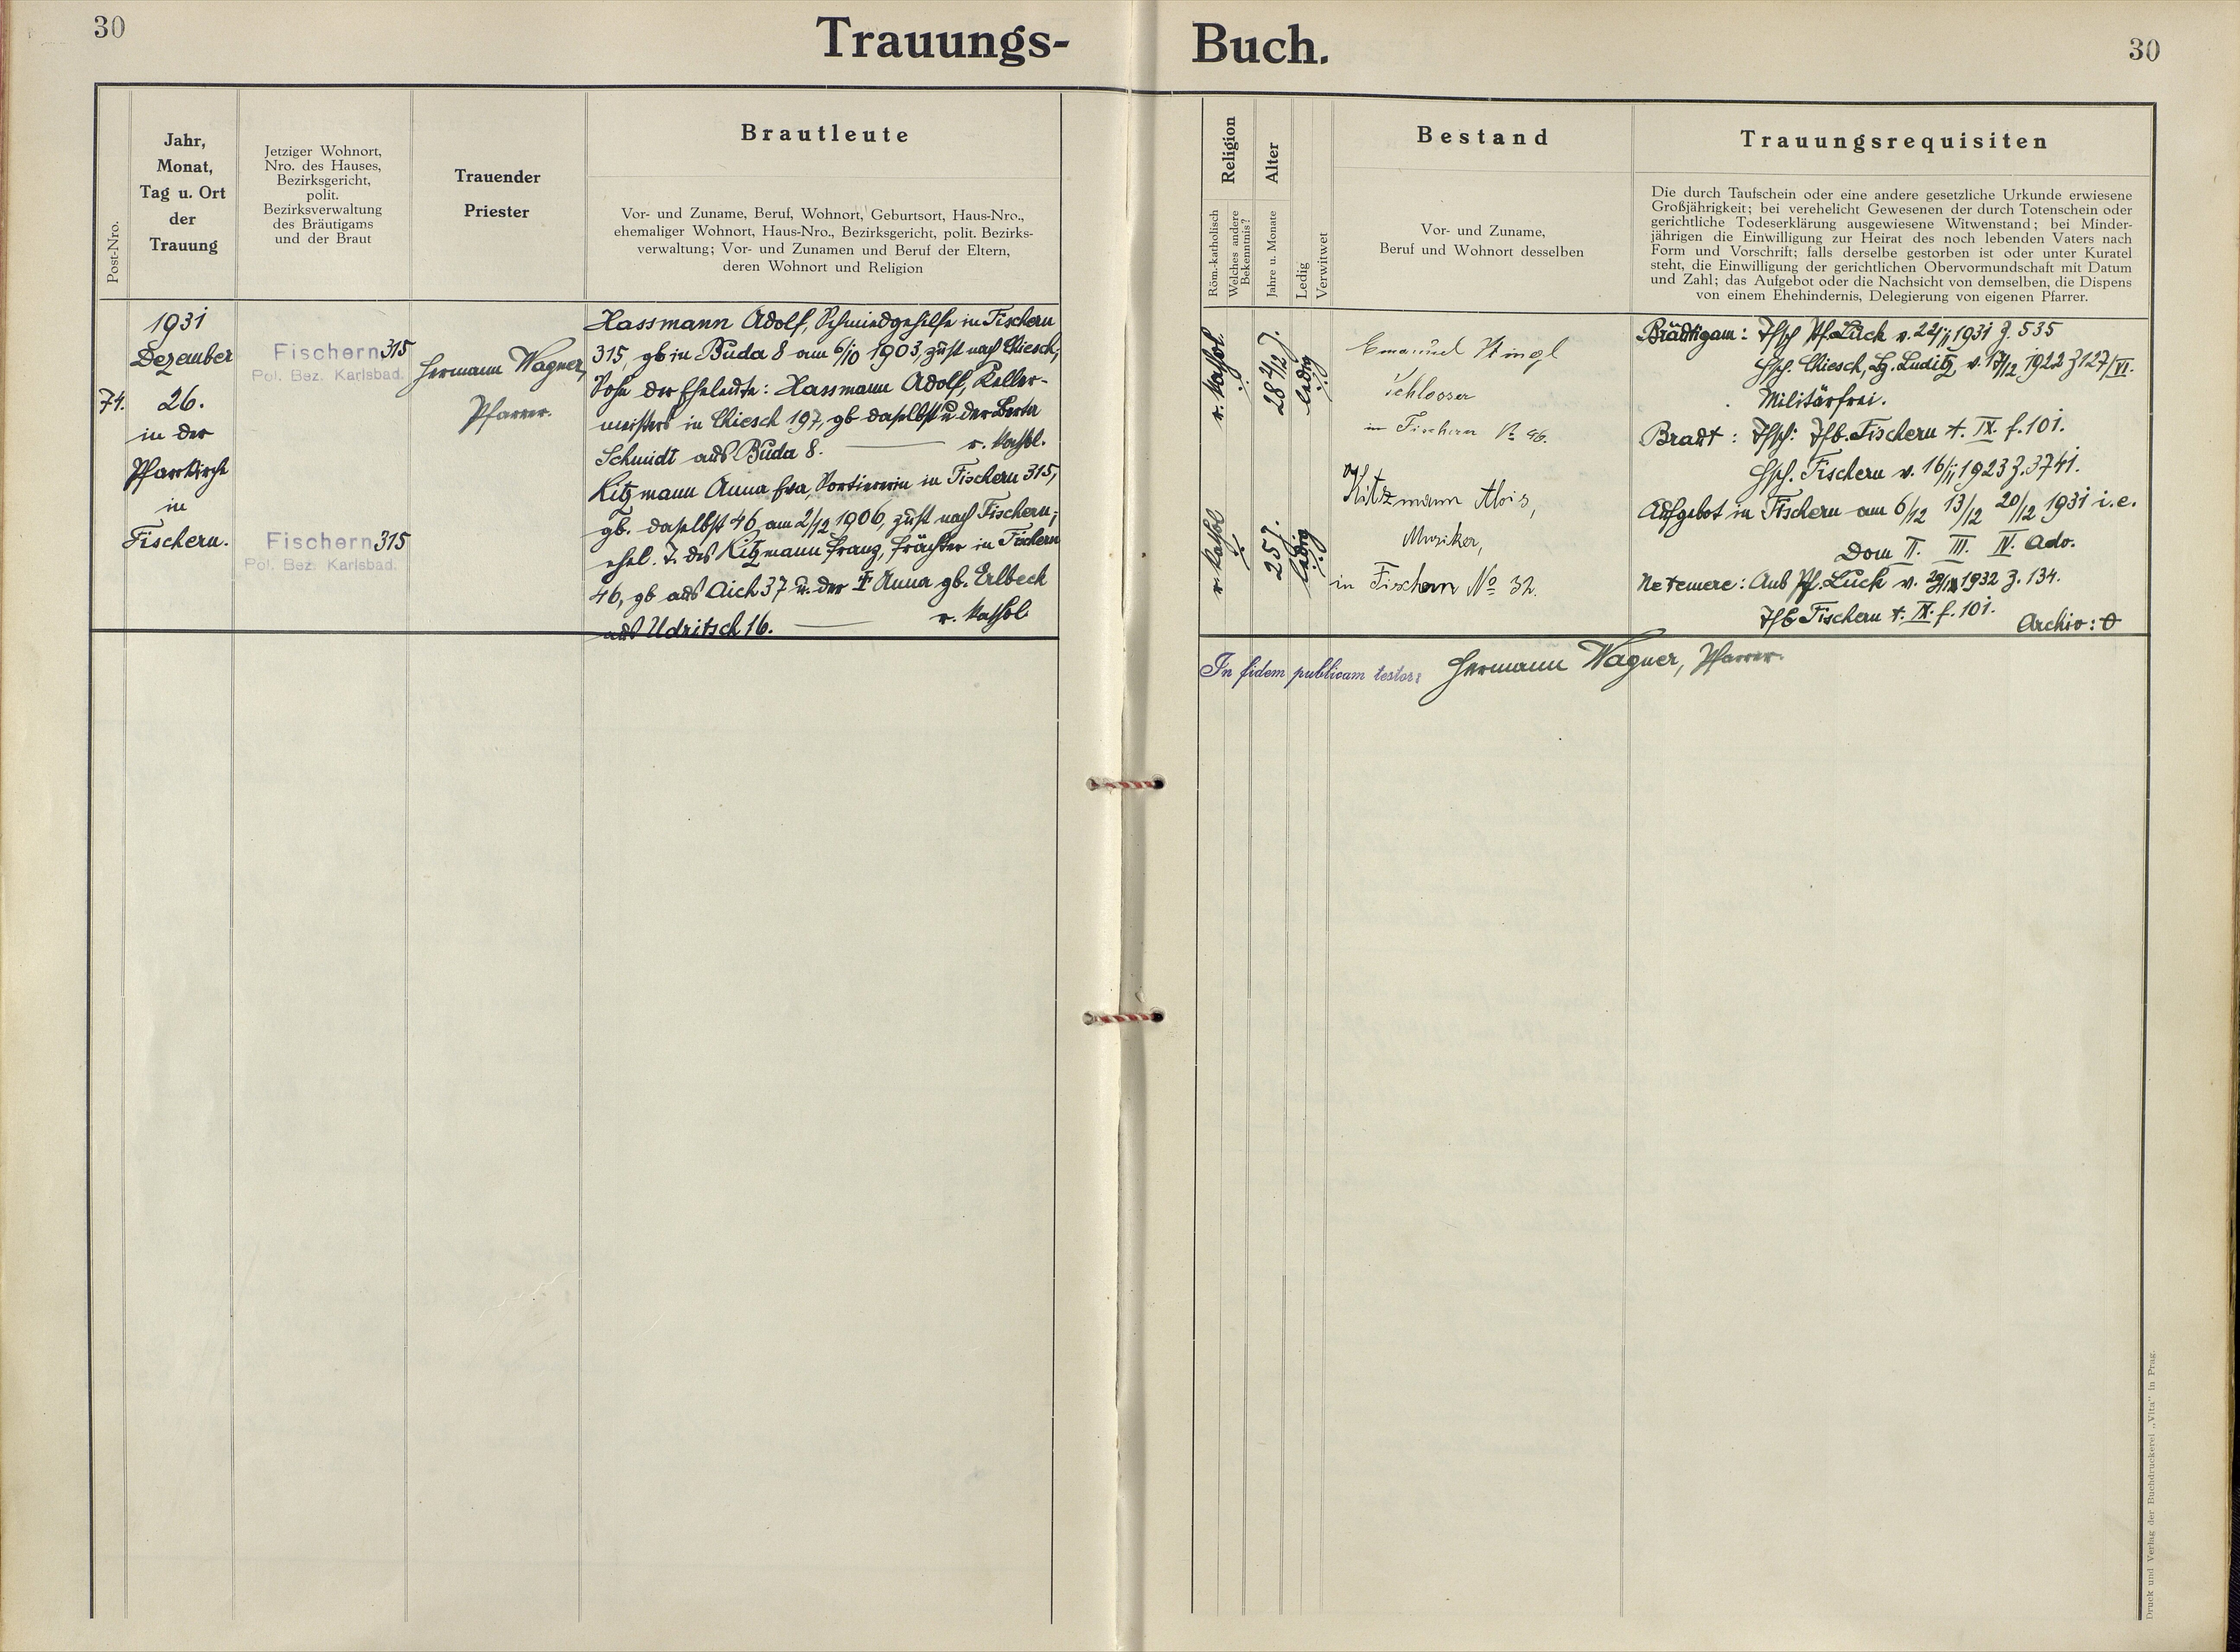 30
Trauungs-
Buch.
30
Post-Nro.
Jahr,
Monat,
Tag u. Ort
der
Trauung
Jetziger Wohnort,
Nro. des Hauses,
Bezirksgericht,
polit.
Bezirksverwaltung
des Bräutigams
und der Braut
Trauender
Priester
Brautleute
Vor- und Zuname, Beruf, Wohnort, Geburtsort, Haus-Nro.,
ehemaliger Wohnort, Haus-Nro., Bezirksgericht, polit. Bezirks-
verwaltung; Vor- und Zunamen und Beruf der Eltern,
deren Wohnort und Religion
Religion
Röm.-katholisch
Welches andere
Bekenntnis?
Alter
Jahre u. Monate
Ledig
Verwitwet
Bestand
Vor- und Zuname,
Beruf und Wohnort desselben
Trauungsrequisiten
Die durch Taufschein oder eine andere gesetzliche Urkunde erwiesene
Großjährigkeit; bei verehelicht Gewesenen der durch Totenschein oder
gerichtliche Todeserklärung ausgewiesene Witwenstand; bei Minder-
jährigen die Einwilligung zur Heirat des noch lebenden Vaters nach
Form und Vorschrift; falls derselbe gestorben ist oder unter Kuratel
steht, die Einwilligung der gerichtlichen Obervormundschaft mit Datum
und Zahl; das Aufgebot oder die Nachsicht von demselben, die Dispens
von einem Ehehindernis, Delegierung von eigenen Pfarrer.
74.
1931
Dezember
26.
in der
Pfarrkirche
in
Fischern.
Fischern 315
Pol. Bez. Karlsbad.
Fischern 315
Pol. Bez. Karlsbad.
Hermann Wagner,
Pfarrer.
Hassmann Adolf, Schmiedgehilfe in Fischern
315, gb in Buda 8 am 6/10 1903, zust nach Chiesch,
Sohn der Eheleute: Hassmann Adolf, Keller-
meisters in Chiesch 197, gb daselbst u. der Berta
Schmidt aus Buda 8. r. kathol.
Kitzmann Anna Eva, Portierin in Fischern 315,
gb. daselbst 46 am 2/12 1906, zust nach Fischern;
ehel. T. des Kitzmann Franz, Frächter in Fischern
46, gb aus Aich 37 u. der Anna gb. Erlbeck
aus Udritsch 16. r. kathol.
r. kathol
28 2/12 J.
ledig
r. kathol
25 J.
ledig
Emanuel Stingl
Schlosser
in Fischern № 46.
Kitzmann Alois,
Musiker,
in Fischern № 32.
Bräutigam: Tfsch Pf. Luck v. 22/11 1931 Z. 535
Hsch. Chiesch, Bz. Luditz v. 17/12 1922 Z 127/VI.
Militärfrei.
Braut: Tfsch: Tfb. Fischern t. IX. f. 101.
Hsch. Fischern v. 16/11 1923 Z. 3741.
Aufgebot in Fischern am 6/12 13/12 20/12 1931 i. e.
Dom II. III. IV. Adv.
Ne temere: Aus Pf. Luck v. 1932 Z. 134.
Tfb Fischern t. IX. f. 101. Archiv: 0
In fidem publicam testor: Hermann Wagner, Pfarrer.
Druck und Verlag der Buchdruckerei „Vita" in Prag.